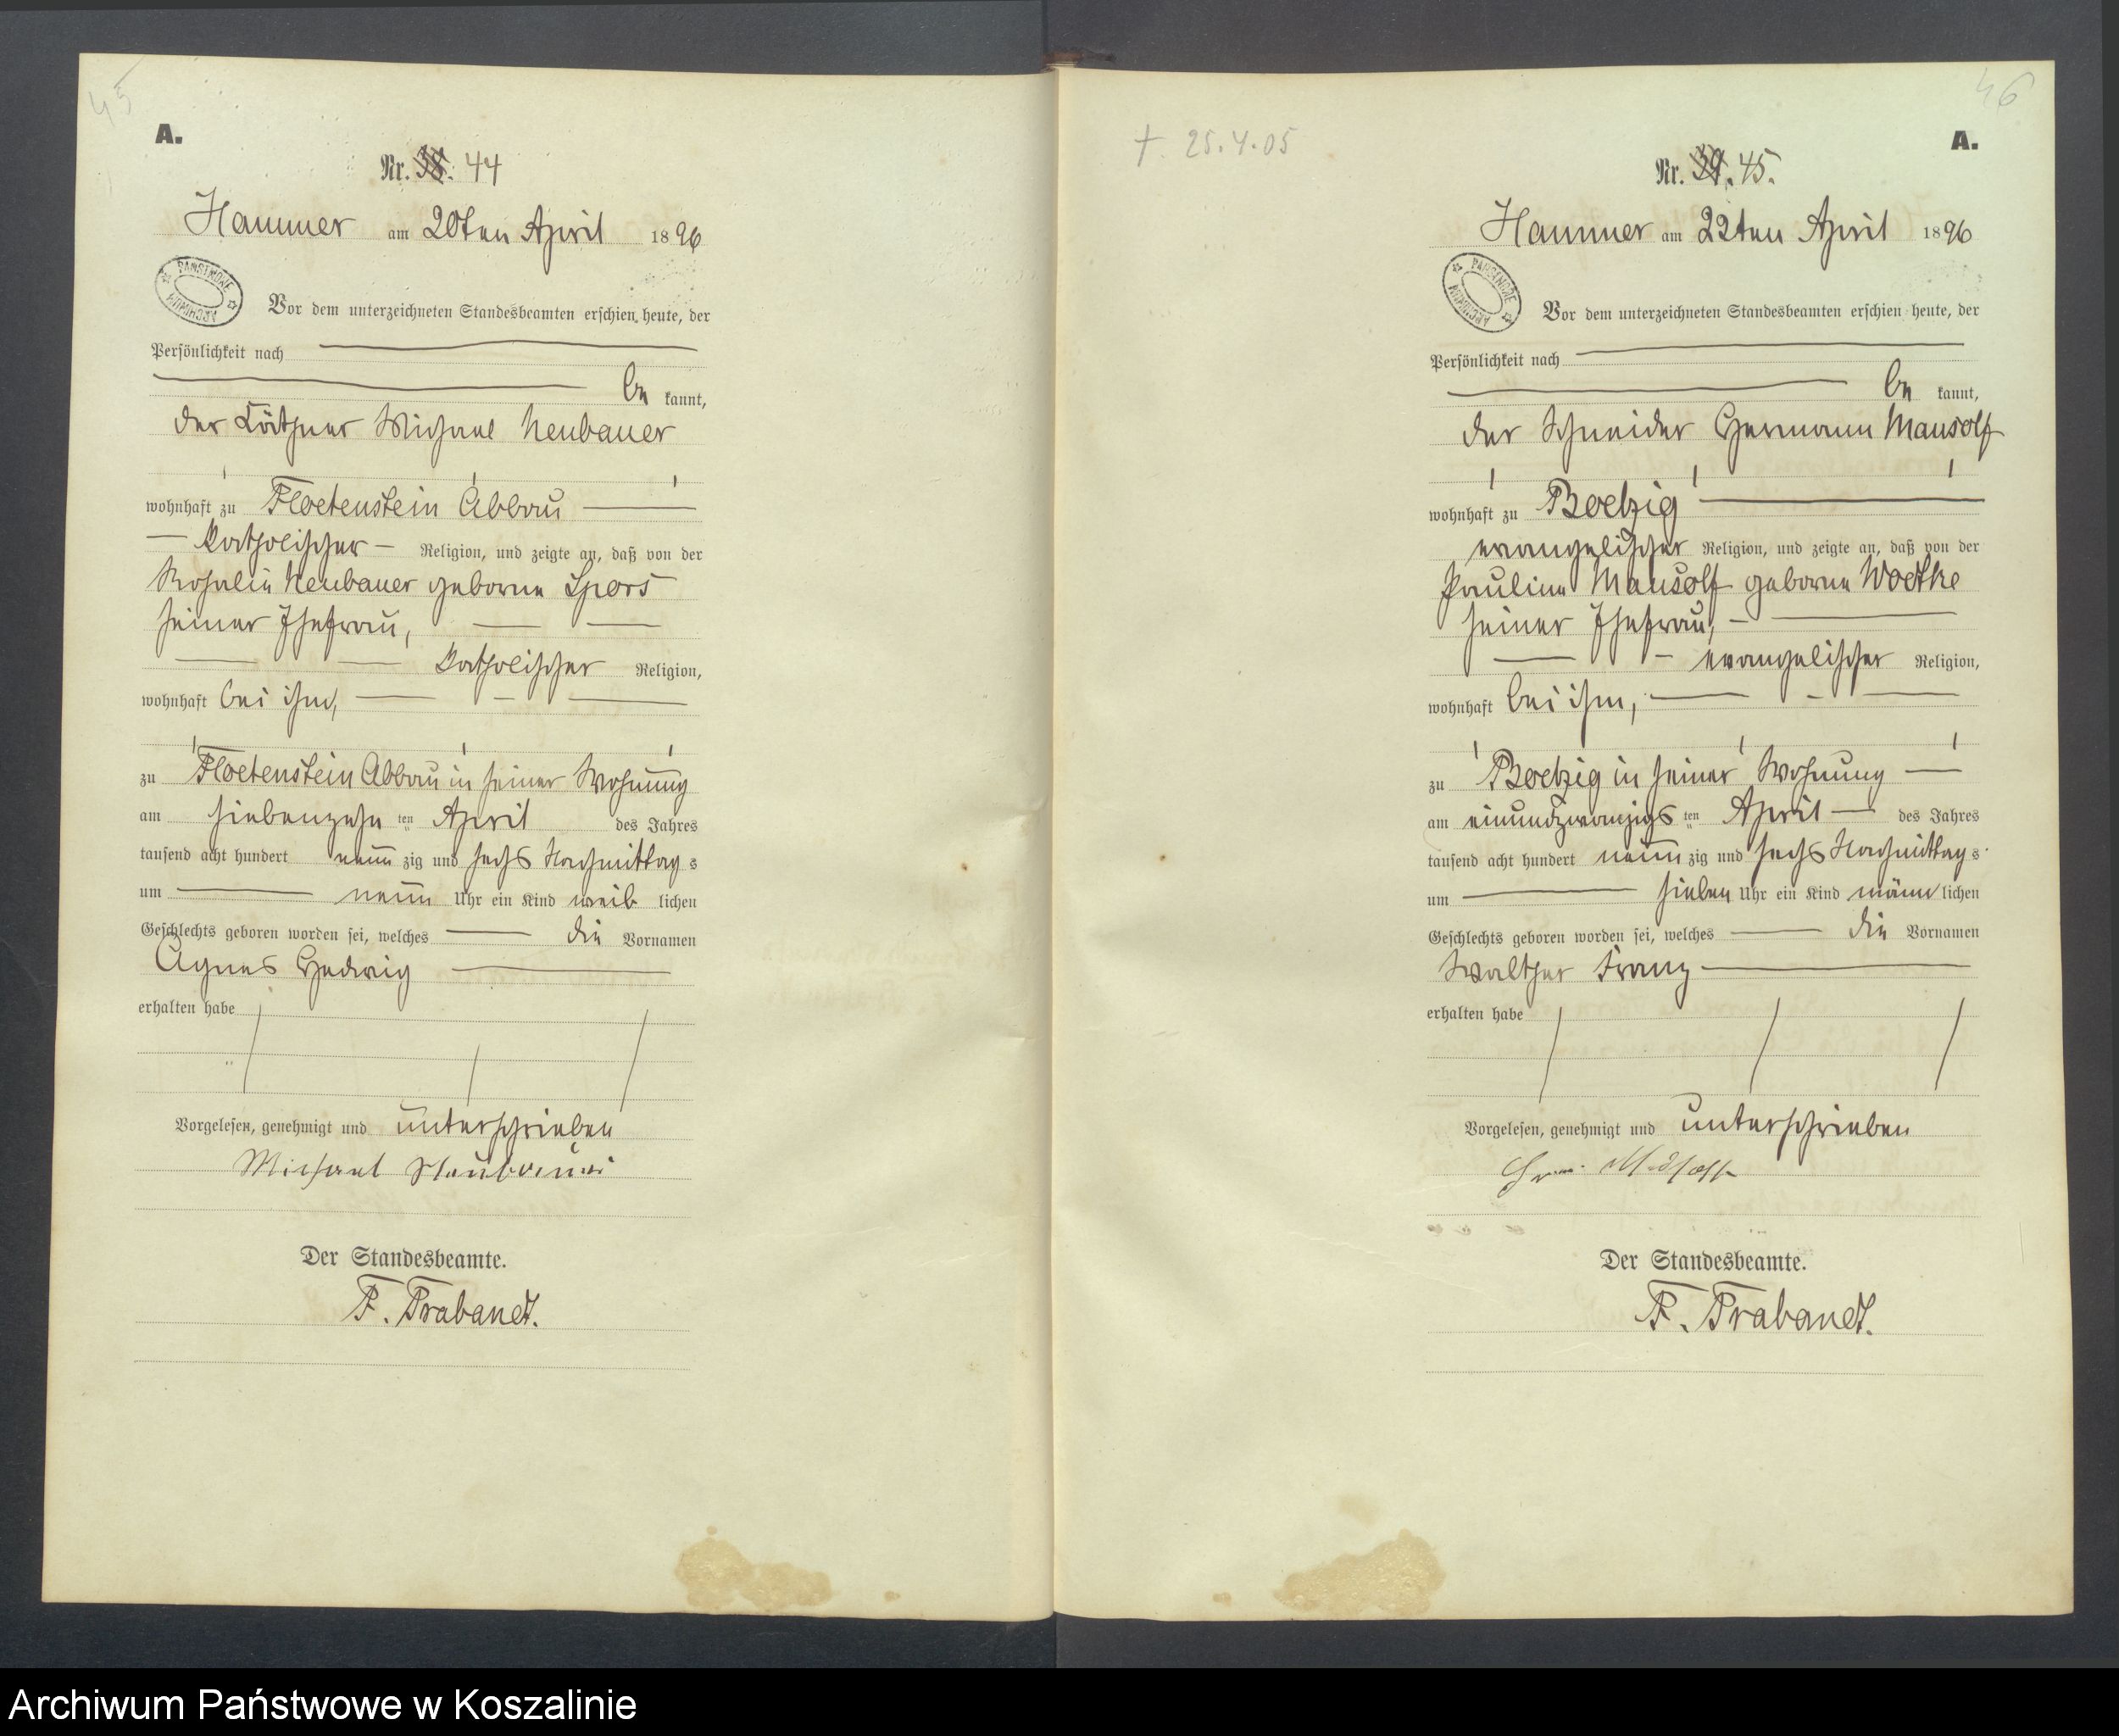 45
A.
Nr. 38. 44
Hammer am 20ten April 1896
PAŃSTWOWE ARCHIWUM
Vor dem unterzeichneten Standesbeamten erschien heute, der
Persönlichkeit nach
be kannt,
der Käthner Michael Neubauer
wohnhaft zu Floetenstein Abbau
katholischer Religion, und zeigte an, daß von der
Rosalie Neubauer geborne Spors
seiner Ehefrau,
katholischer Religion,
wohnhaft bei ihm,
zu Floetenstein Abbau in seiner Wohnung
am siebenzehn ten April des Jahres
tausend acht hundert neun zig und sechs Nachmittag s
um neun Uhr ein Kind weib lichen
Geschlechts geboren worden sei, welches die Vornamen
Agnes Hedwig
erhalten habe
Vorgelesen, genehmigt und unterschrieben
Michael Neubauer
Der Standesbeamte.
F. Trabandt.
46
† 25.4.05
A.
Nr. 39. 45.
Hammer am 22ten April 1896
PAŃSTWOWE ARCHIWUM
Vor dem unterzeichneten Standesbeamten erschien heute, der
Persönlichkeit nach
be kannt,
der Schneider Hermann Mausolf
wohnhaft zu Boelzig
evangelischer Religion, und zeigte an, daß von der
Pauline Mausolf geborne Woetke
seiner Ehefrau,
evangelischer Religion,
wohnhaft bei ihm,
zu Boelzig in seiner Wohnung
am einundzwanzigs ten April des Jahres
tausend acht hundert neun zig und sechs Nachmittag s
um sieben Uhr ein Kind männ lichen
Geschlechts geboren worden sei, welches die Vornamen
Walther Franz
erhalten habe
Vorgelesen, genehmigt und unterschrieben
Der Standesbeamte.
F. Trabandt.
Archiwum Państwowe w Koszalinie